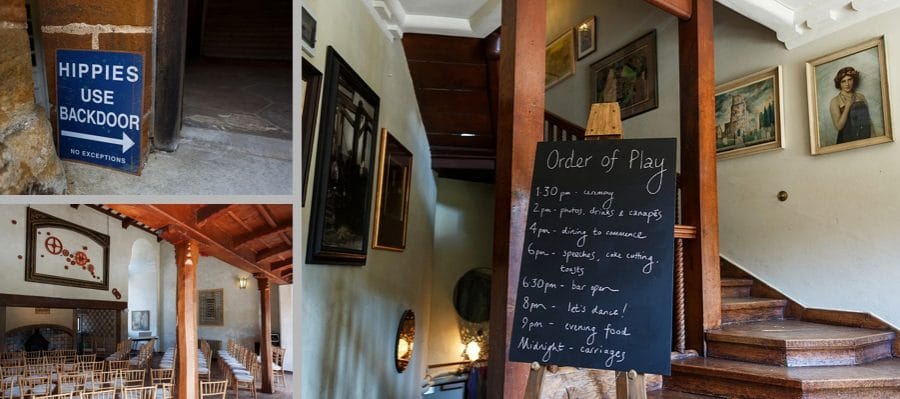 HIPPIES
USE
BACKDOOR
NO EXCEPTIONS
Order of Play
1:30pm - ceremony
2pm - photos, drinks & canapés
4pm - dining to commence
6pm - speeches, cake cutting,
toasts
6:30pm - bar open
8pm - let's dance!
9pm - evening food
Midnight - carriages